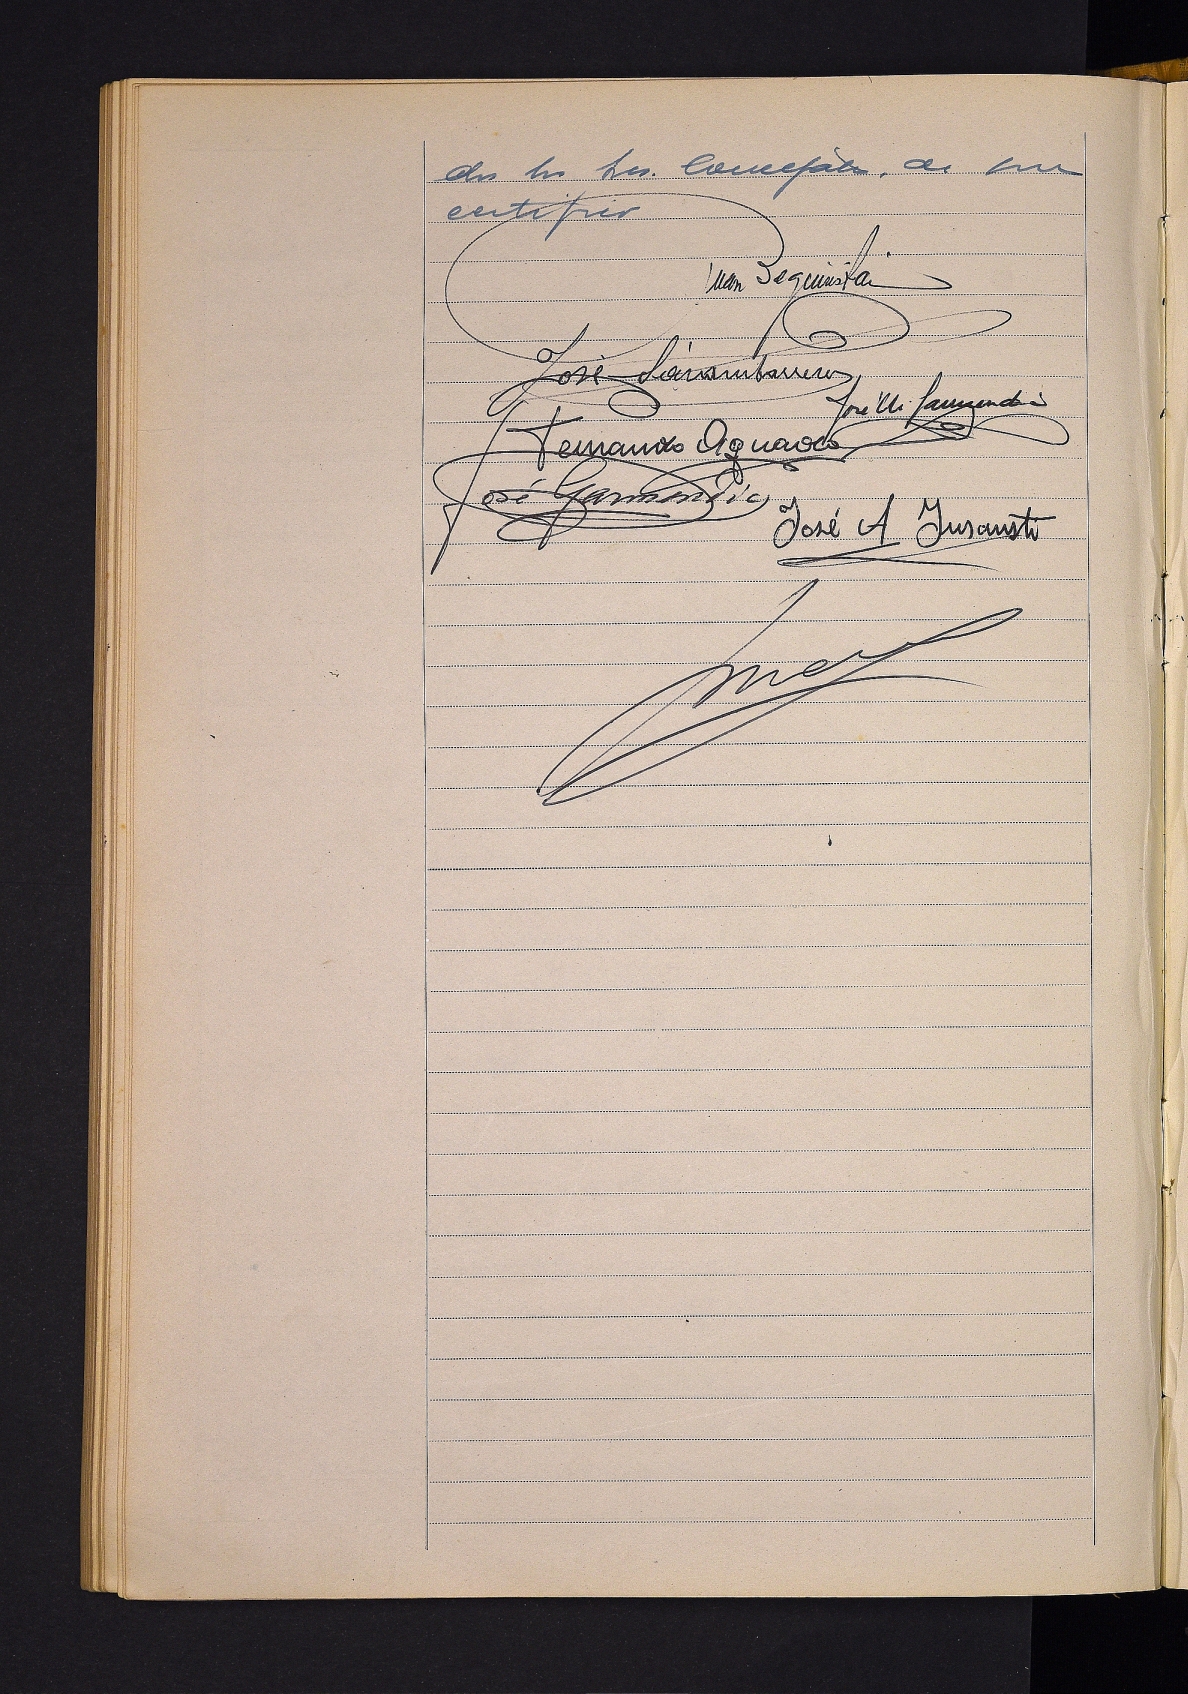 dos los Sres. Concejales, de que
certifico
Juan Beguiristain
José
José M. Garmendia
Fernando Aguado
José Garmendia
José A Insausti